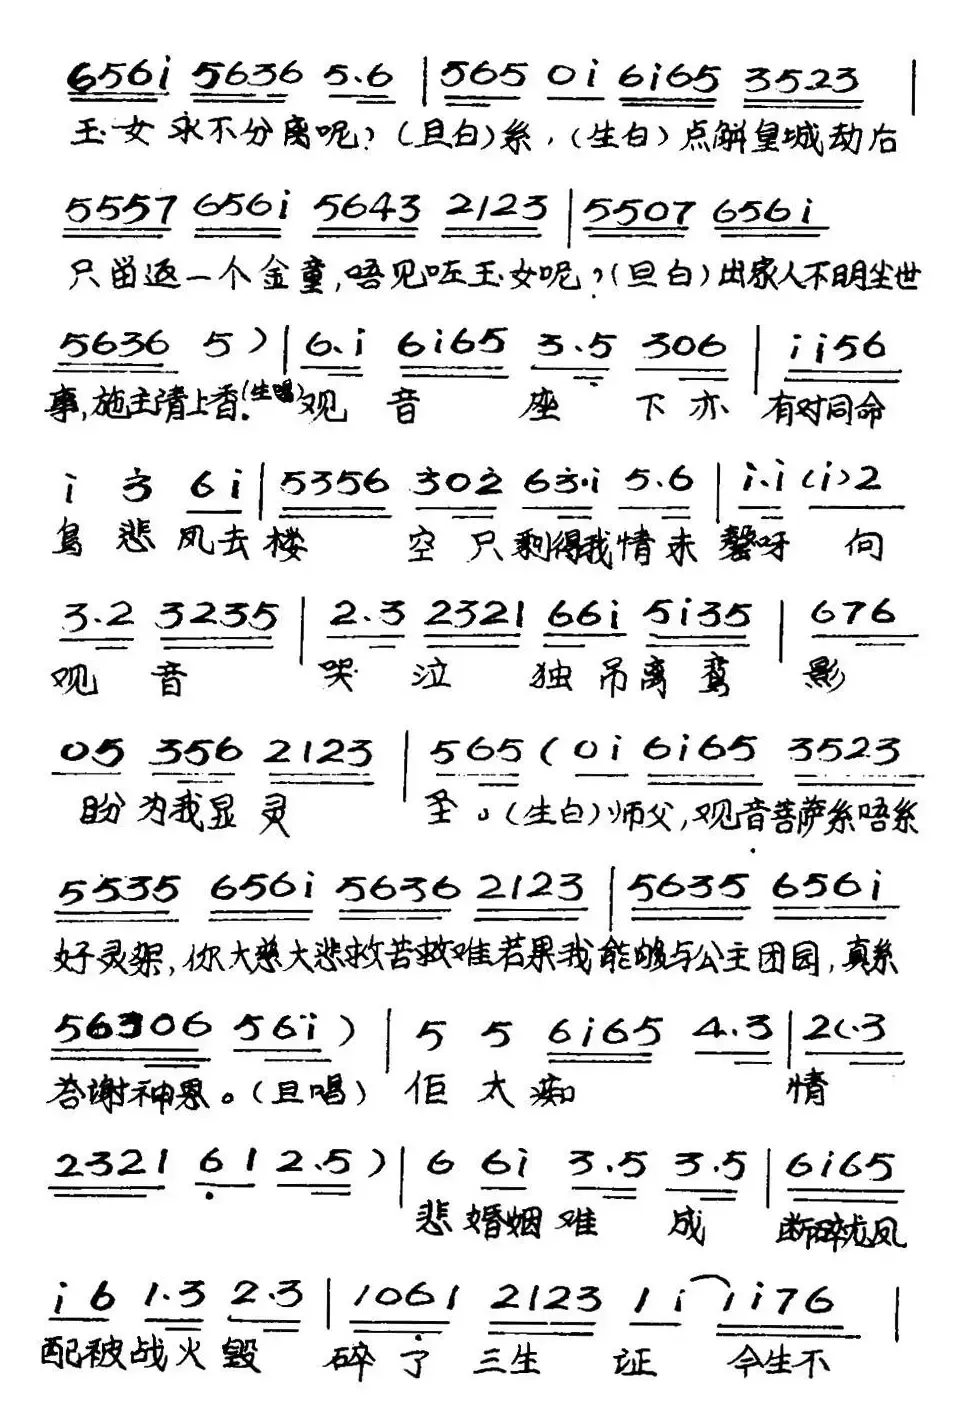 6561 5636 5.6 | 565 0i 6i65 3523 |
玉女永不分离呢？（旦白）系，（生白）点解皇城劫后
5557 656i 5643 2123 | 5507 656i
只留返一个金童，唔见咗玉女呢？（旦白）出家人不明尘世
5636 5 ) | 6.i 6i65 3.5 306 | ii56
事，施主请上香。（生唱）观音座下亦有对同命
i 3 6i | 5356 302 63.i 5.6 | i.i (i)2
鸟悲凤去楼空只剩得我情未磬呀向
3.2 3235 | 2.3 2321 66i 5i35 | 676
观音哭泣独吊离鸾影
05 356 2123 | 565 (0i 6i65 3523
盼为我显灵圣。（生白）师父，观音菩萨系唔系
5535 656i 5636 2123 | 5635 656i
好灵架，你大慈大悲救苦救难若果我能够与公主团园，真系
56306 56i ) | 5 5 6i65 4.3 | 2(.3
答谢神恩。（旦唱）佢太痴情
2321 61 2.5 ) | 6 6i 3.5 3.5 | 6i65
悲婚姻难成断碎龙凤
i6 1.3 2.3 | 1061 2123 1i 1i76 |
配被战火毁碎了三生证今生不